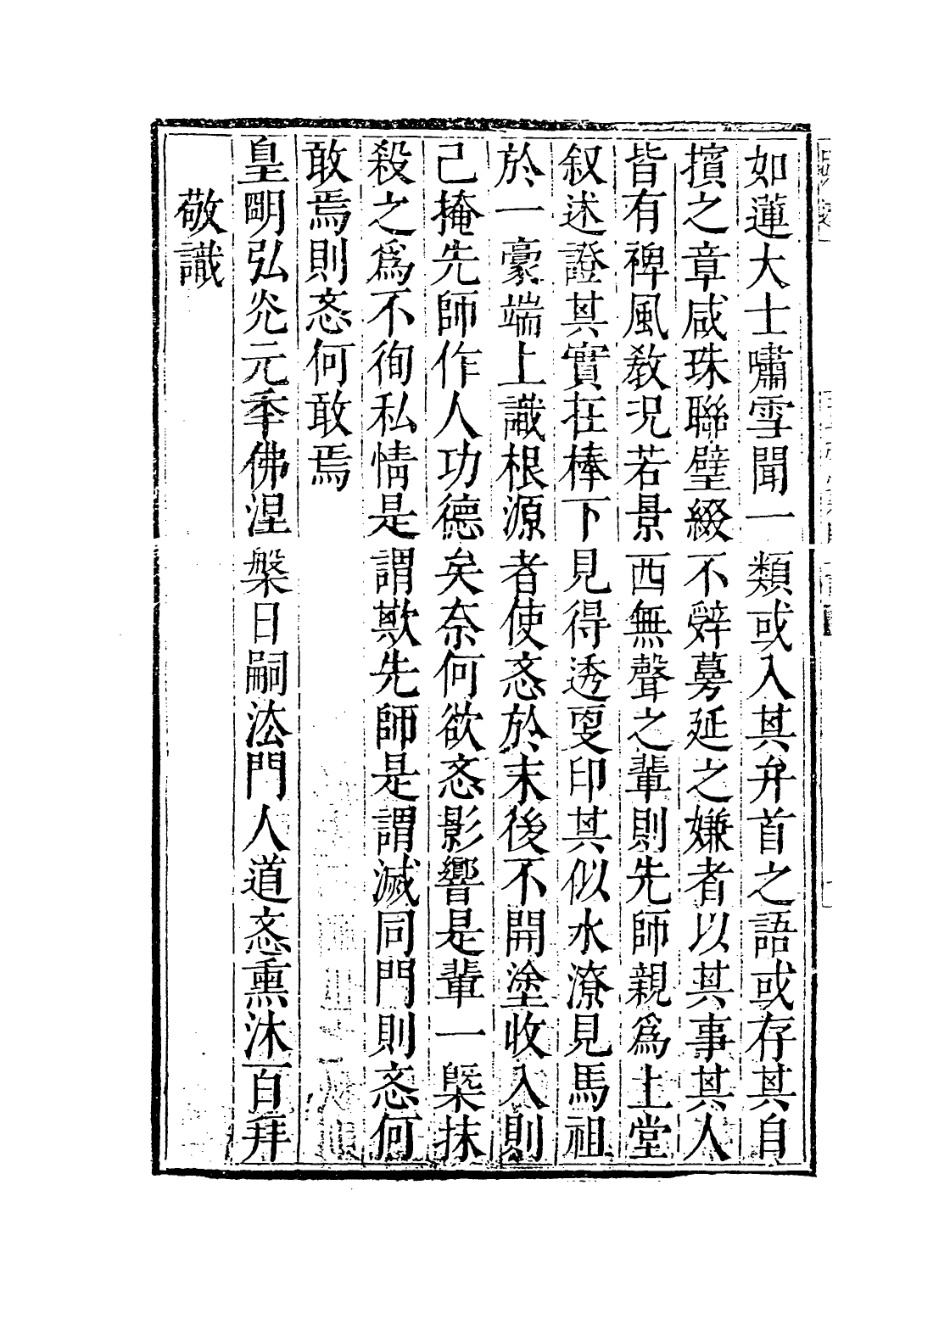 如蓮大士嘯雪聞一類或入其弁首之語或存其自
擯之章咸珠聯璧綴不辭蔓延之嫌者以其事其人
皆有裨風教况若景西無聲之輩則先師親為上堂
叙述證其實在棒下見得透更印其似水潦見馬祖
於一豪端上識根源者使忞於末後不開塗收入則
己掩先師作人功德矣奈何欲忞影響是輩一槩抹
殺之為不徇私情是謂欺先師是謂滅同門則忞何
敢焉則忞何敢焉
皇明弘光元年佛涅槃日嗣法門人道忞熏沐百拜
敬識